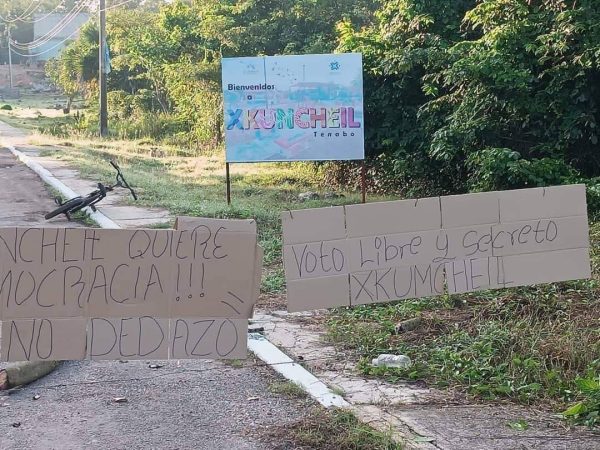 Bienvenidos
a
XKUNCHEIL
Tenabo
NCHEIL QUIERE
MOCRACIA !!!
NO DEDAZO
Voto Libre y secreto
XKUMCHEIL